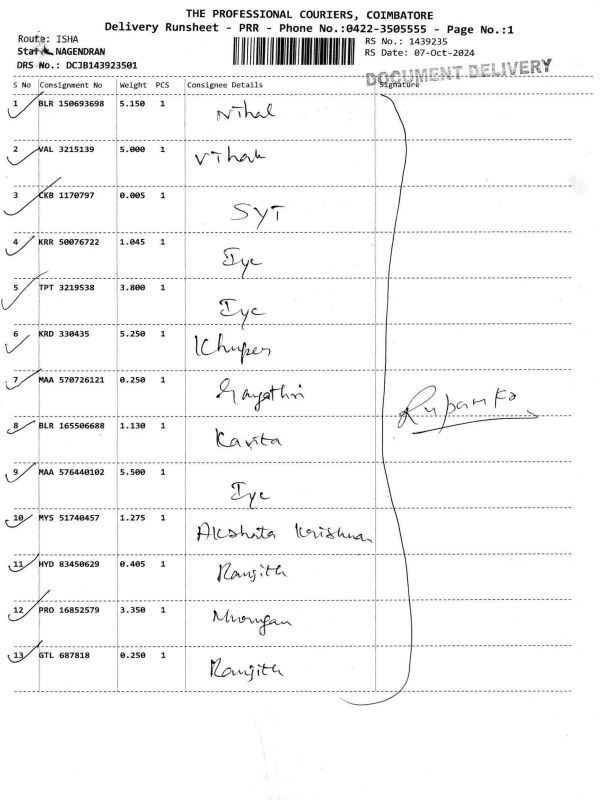 THE PROFESSIONAL COURIERS, COIMBATORE
Delivery Runsheet - PRR - Phone No.:0422-3505555 - Page No.:1
Route: ISHA
Staff: NAGENDRAN
DRS No.: DCJB143923501
RS No.: 1439235
RS Date: 07-Oct-2024
DOCUMENT DELIVERY
S No Consignment No Weight PCS Consignee Details Signature
1 BLR 150693698 5.150 1 Nihal
2 VAL 3215139 5.000 1
3 CKB 1170797 0.005 1 SYT
4 KRR 50076722 1.045 1 Iyc
5 TPT 3219538 3.800 1 Iyc
6 KRD 330435 5.250 1
7 MAA 570726121 0.250 1 Gayathri
8 BLR 165506688 1.130 1 Kavita
9 MAA 576440102 5.500 1 Iyc
10 MYS 51740457 1.275 1 Akshata Krishnan
11 HYD 83450629 0.405 1 Ranjith
12 PRO 16852579 3.350 1
13 GTL 687818 0.250 1 Ranjith